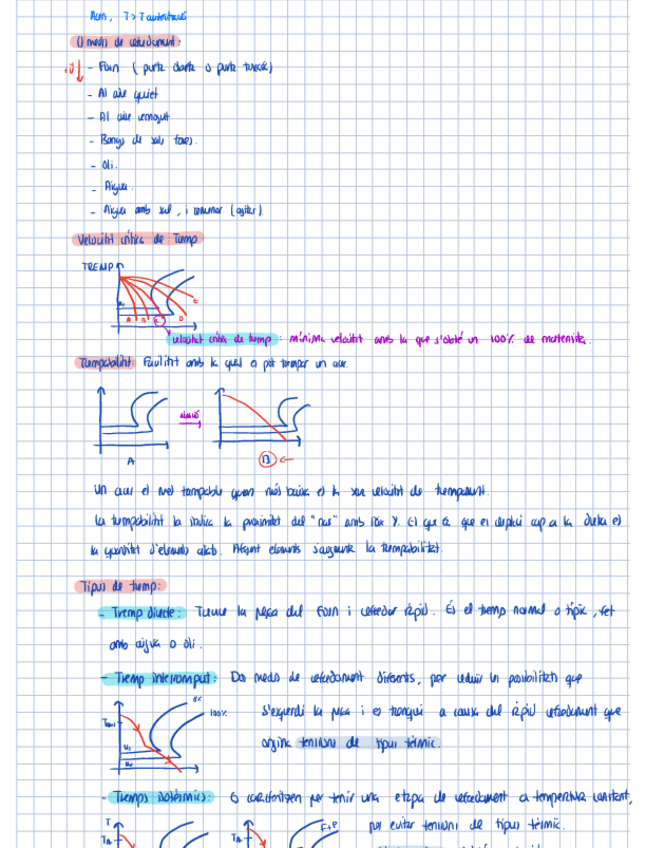 Acers, T > T austenització
Ú medis de refredament:
- Forn ( porta oberta o porta tancada)
- Al aire quiet
- Al aire
- Banys de sals
- Oli.
- Aigua.
- Aigua amb sal, i remenar (agitar)
Velocitat crítica de Tremp
TREMP
A B C D E
velocitat crítica de tremp : mínima velocitat amb la que s'obté un 100% de martensita.
Trempabilitat: Facilitat amb la qual es pot trempar un acer.
A B
Un acer és més trempable quan més baixa és la seva velocitat de trempament.
la trempabilitat la indica la proximitat del "nas" amb l'eix Y. El que fa que es desplaci cap a la dreta és
la quantitat d'elements aliats. Afegint elements s'augmenta la trempabilitat.
Tipus de tremp:
- Tremp directe: Treure la peça del forn i refredar ràpid. És el tremp normal o típic, fet
amb aigua o oli.
- Tremp interromput: Dos medis de refredament diferents, per reduir la possibilitat que
100%
s'esquerdi la peça i es trenqui a causa del ràpid refredament que
origina tensions de tipus tèrmic.
- Tremps isotèrmics: Es caracteritzen per tenir una etapa de refredament a temperatura constant,
per evitar tensions de tipus tèrmic.
T TA TA F+P